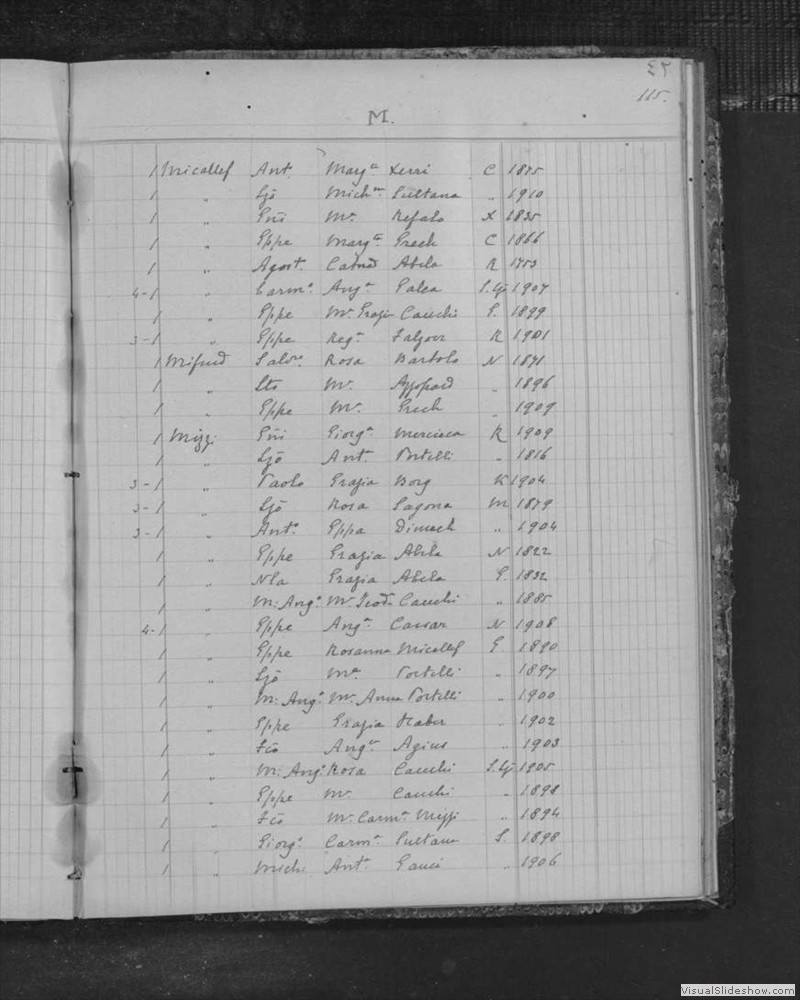 115.
M.
1 Micallef Ant. Marg.a Xerri C 1875
1 " Ljō Mich.na Sultana " 1910
1 " Gui M.a Refalo X 1835
1 " Gppe Marg.ta Grech C 1866
1 " Agost. Catnā Abela R 1753
4-1 " Carm.o Ang.a Galea S.Lj 1907
1 " Gppe M.a Grazia Cauchi G. 1899
3-1 " Gppe Reg.a Falzon R 1901
1 Mifsud Salv.re Rosa Bartolo N 1871
1 " M.a Appard " 1896
1 " Gppe M.a Grech " 1909
1 Mizzi Gui Giorg.a Mercieca R 1909
1 " Ljō Ant.a Portelli " 1816
3-1 " Paolo Grazia Borg K 1904
3-1 " Ljō Rosa Sagona M 1879
3-1 " Ant.o Gppa Dimech " 1904
1 " Gppe Grazia Abela N 1822
1 " Nla Grazia Abela G. 1832
1 " M. Ang.o M.a Teod.a Cauchi " 1885
4-1 " Gppe Ang.a Cassar N 1908
1 " Gppe Rosanna Micallef G 1890
1 " Ljō M.a Portelli " 1897
1 " M. Ang.o M.a Anna Portelli " 1900
1 " Gppe Grazia Haber " 1902
1 " Fcō Ang.a Agius " 1903
1 " M. Ang.o Rosa Cauchi S.Lj 1905
1 " Gppe M.a Cauchi " 1898
1 " Fcō M.a Carm.a Mizzi " 1894
1 " Giorg.o Carm.a Sultana S. 1898
1 " Mich. Ant.a Gauci " 1906
VisualSlideshow.com